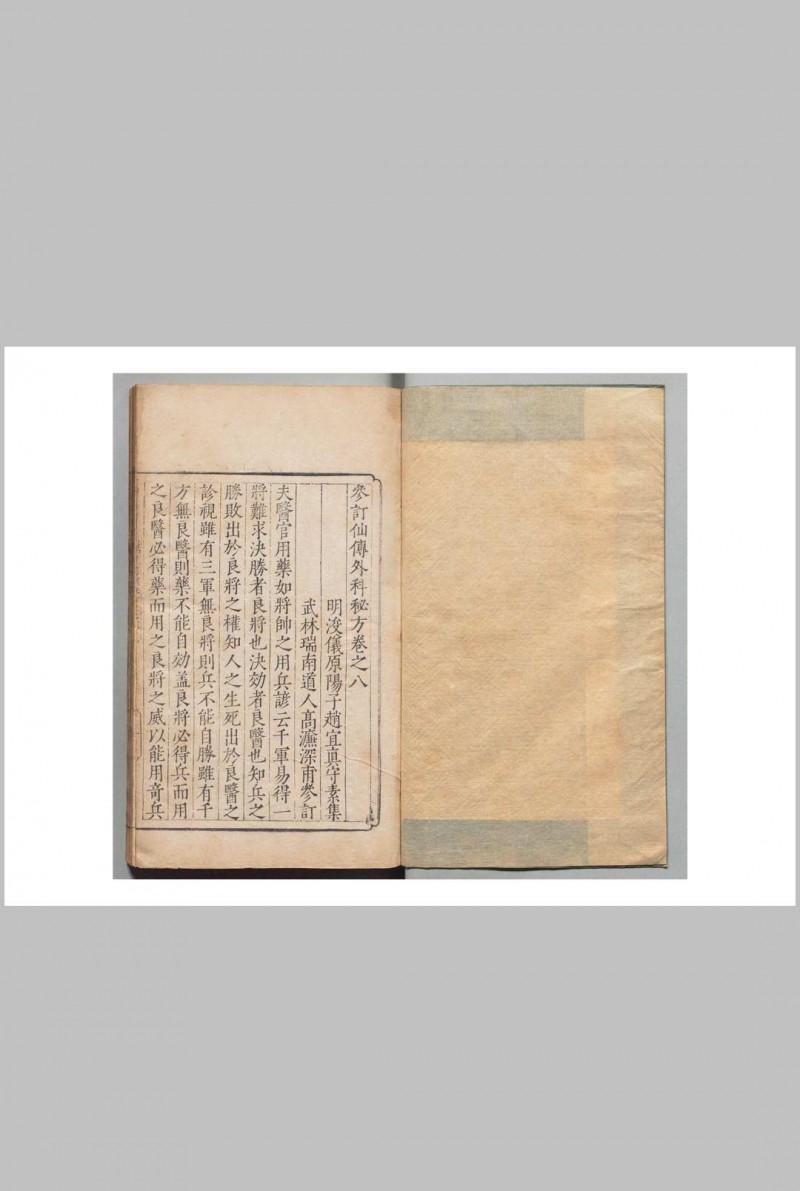 參訂仙傳外科秘方卷之八
明浚儀原陽子趙宜眞守素集
武林瑞南道人高濂深甫參訂
夫醫官用藥如將帥之用兵諺云千軍易得一
將難求決勝者良將也決効者良醫也知兵之
勝敗出於良將之權知人之生死出於良醫之
診視雖有三軍無良將則兵不能自勝雖有千
方無良醫則藥不能自効盖良將必得兵而用
之良醫必得藥而用之良將之威以能用奇兵